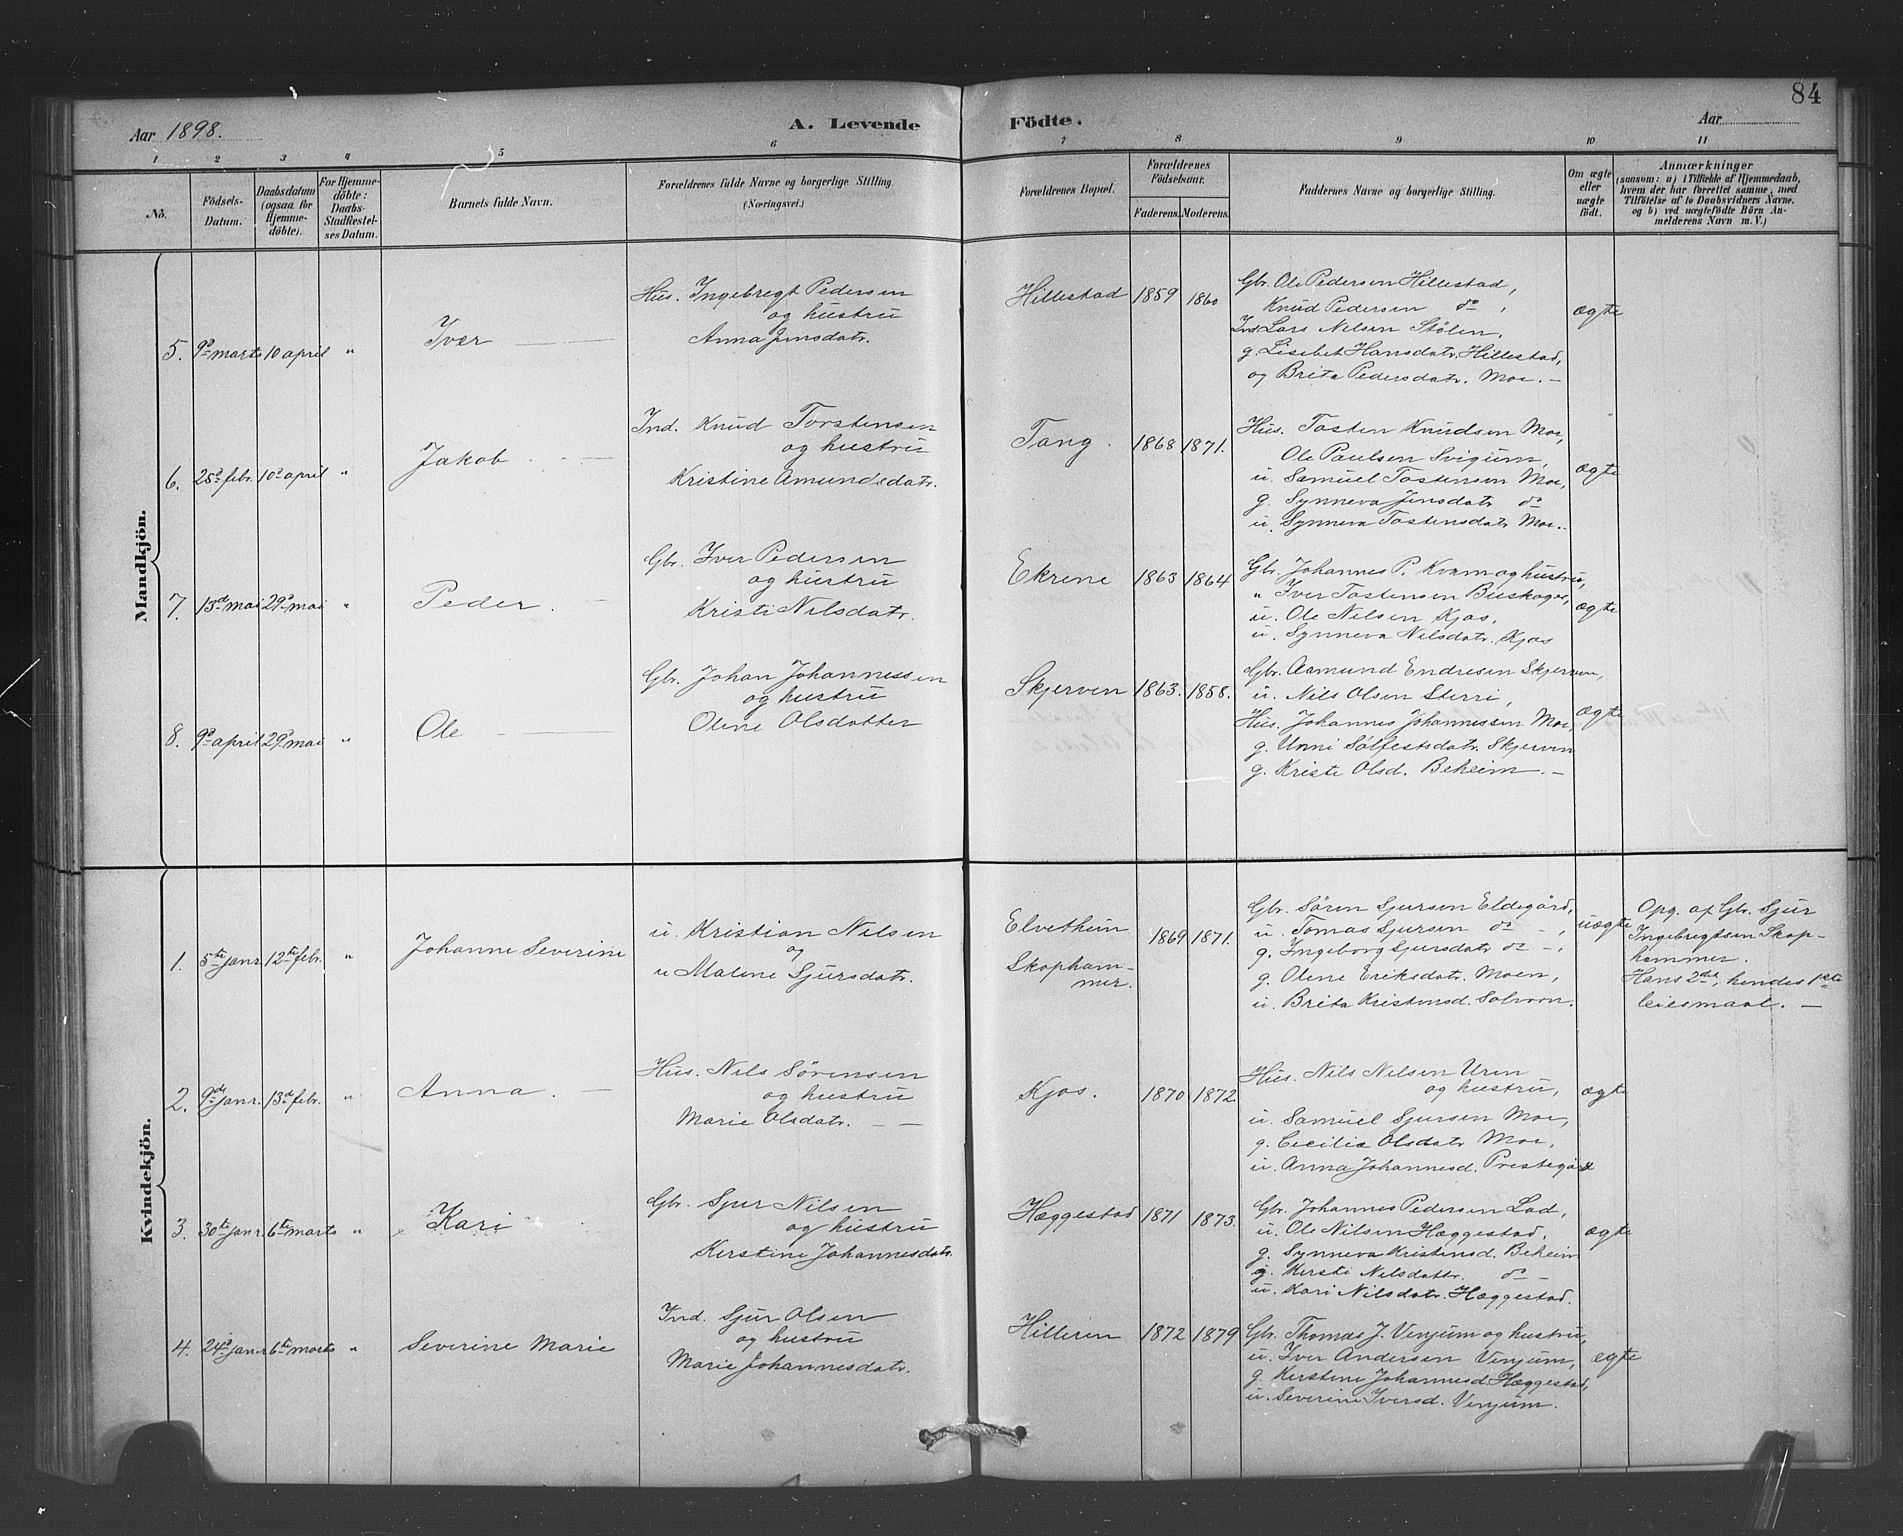 84
Aar 1898.
A. Levende Födte.
Aar
1 2 3 4 5 6 7 8 9 10 11
Nö.
Födsels-Datum.
Daabsdatum (ogsaa for Hjemme-döbte).
For Hjemme-döbte: Daabs-Stadfæstel-ses Datum.
Barnets fulde Navn.
Forældrenes fulde Navne og borgerlige Stilling.
(Næringsvei.)
Forældrenes Bopæl.
Forældrenes Födselsaar.
Faderens. Moderens.
Faddernes Navne og borgerlige Stilling.
Om ægte eller uægte födt.
Anmærkninger
(saasom: a) i Tilfælde af Hjemmedaab,
hvem der har forrettet samme, med
Tilföielse af to Daabsvidners Navne.
og b) ved uægtefödte Börn An-
melderens Navn m. V.)
Mandkjön.
5. 9de marts 10 april "
Iver
Hus. Ingebregt Pedersen
og hustru
Anna Jensdatr.
Hillestad 1859 1860
Gbr. Ole Pedersen Hillestad,
Knud Pedersen do,
Ind. Lars Nilsen Stölen,
g. Lisebet Hansdatr. Hillestad,
og Brita Pedersdatr. Moe. –
ægte
6. 25de febr. 10de april "
Jakob
Ind. Knud Torstensen
og hustru
Kristine Amundsdatr.
Tang. 1868 1871.
Hus. Tosten Knudsen Moe,
Ole Paulsen Svigum,
u. Samuel Tostensen Moe,
g. Synneva Jensdatr do
u. Synneva Tostensdatr Moe.
ægte
7. 13de mai 29de mai "
Peder.
Gbr. Iver Pedersen
og hustru
Kristi Nilsdatr.
Ekrene 1863 1864
Gbr. Johannes P. Kvam og hustru,
" Iver Tostensen Buskager,
u. Ole Nilsen Kjos,
u. Synneva Nilsdatr. Kjos
ægte
8. 9de april 29de mai "
Ole
Gbr. Johan Johannessen
og hustru
Oline Olsdatter
Skjerven 1863. 1858.
Gbr. Aamund Endresen Skjerven,
u. Nils Olsen Sterri,
Hus. Johannes Johannessen Moe,
g. Unni Sölfestsdatr. Skjerven
g. Kristi Olsd. Beheim. –
ægte
Kvindekjön.
1. 5te janr. 12te febr. "
Johanne Severine
u. Kristian Nilsen
og
u Malene Sjursdatr.
Elvethun
Skopham-
mer.
1869 1871.
Gbr. Sören Sjursen Eldegård,
u. Tomas Sjursen do – ,
g. Ingeborg Sjursdatr do – ,
g. Oline Eriksdatr. Moen,
u. Brita Kristensd. Solvorn.
uægte
Opg. af Gbr. Sjur
Ingebregtsen Skop-
hammer.
Hans 2det, hendes 1ste
leiesmaal. –
2. 9de janr. 13de febr. "
Anna.
Hus. Nils Sörensen
og hustru
Marie Olsdatr.
Kjos. 1870 1872
Hus. Nils Nilsen Uren
og hustru,
u. Samuel Sjursen Moe,
g. Cecilia Olsdatr Moe,
u. Anna Johannesd. Prestegård
ægte
3. 30te janr. 6te marts "
Kari
Gbr. Sjur Nilsen
og hustru
Kerstine Johannesdatr.
Hæggestad 1871 1873.
Gbr. Johannes Pedersen Lad,
u. Ole Nilsen Hæggestad,
g. Synneva Kristensd. Beheim
g. Kersti Nilsdattr. do –
u. Kari Nilsdatr. Hæggestad.
ægte
4. 24de janr 6te marts "
Severine Marie
Ind. Sjur Olsen
og hustru
Marie Johannesdatr.
Hilleren 1872 1879
Gbr. Thomas J. Venjum og hustru,
u. Iver Andersen Venjum,
g. Kerstine Johannesd. Hæggestad,
u. Severine Iversd. Venjum.
ægte